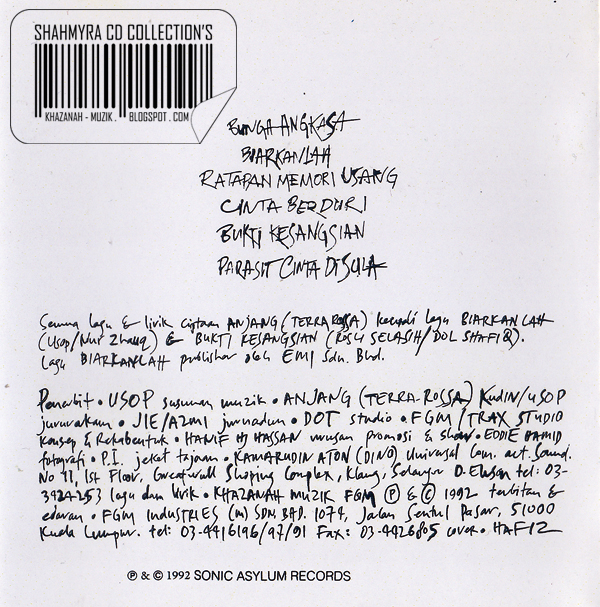 SHAHMYRA CD COLLECTION'S
KHAZANAH - MUZIK . BLOGSPOT . COM
BUNGA ANGKASA
BIARKANLAH
RATAPAN MEMORI USANG
CINTA BERDURI
BUKTI KESANGSIAN
PARASIT CINTA DISULA
Semua lagu & lirik ciptaan ANJANG (TERRA ROSSA) kecuali lagu BIARKANLAH
(Usop/Nur Zhauq) & BUKTI KESANGSIAN (ROSLI SELASIH/DOL SHAFIQ).
lagu BIARKANLAH publisher oleh EMI Sdn. Bhd.
Penerbit • USOP susunan muzik • ANJANG (TERRA-ROSSA) Kudin/USOP
jururakam • JIE/AZMI jurnadun • DOT studio • FGM/TRAX STUDIO
konsep & Rekabentuk • HANIF HJ HASSAN urusan promosi & show • EDDIE HAMID
fotografi • P.I. jeket tajaan • KAMARUDIN ATON (DINO) Universal Com. art. Sound.
No 11, 1st Floor, Greatwall Shoping Complex, Klang, Selangor D. Ehsan tel: 03-
3424253 lagu dan lirik • KHAZANAH MUZIK FGM Ⓟ & © 1992 terbitan &
edaran • FGM INDUSTRIES (M) SDN BHD. 1074, Jalan Sentul Pasar, 51000
Kuala Lumpur. tel: 03-4416196/97/91 Fax: 03-4426805 cover • HAFIZ
Ⓟ & © 1992 SONIC ASYLUM RECORDS